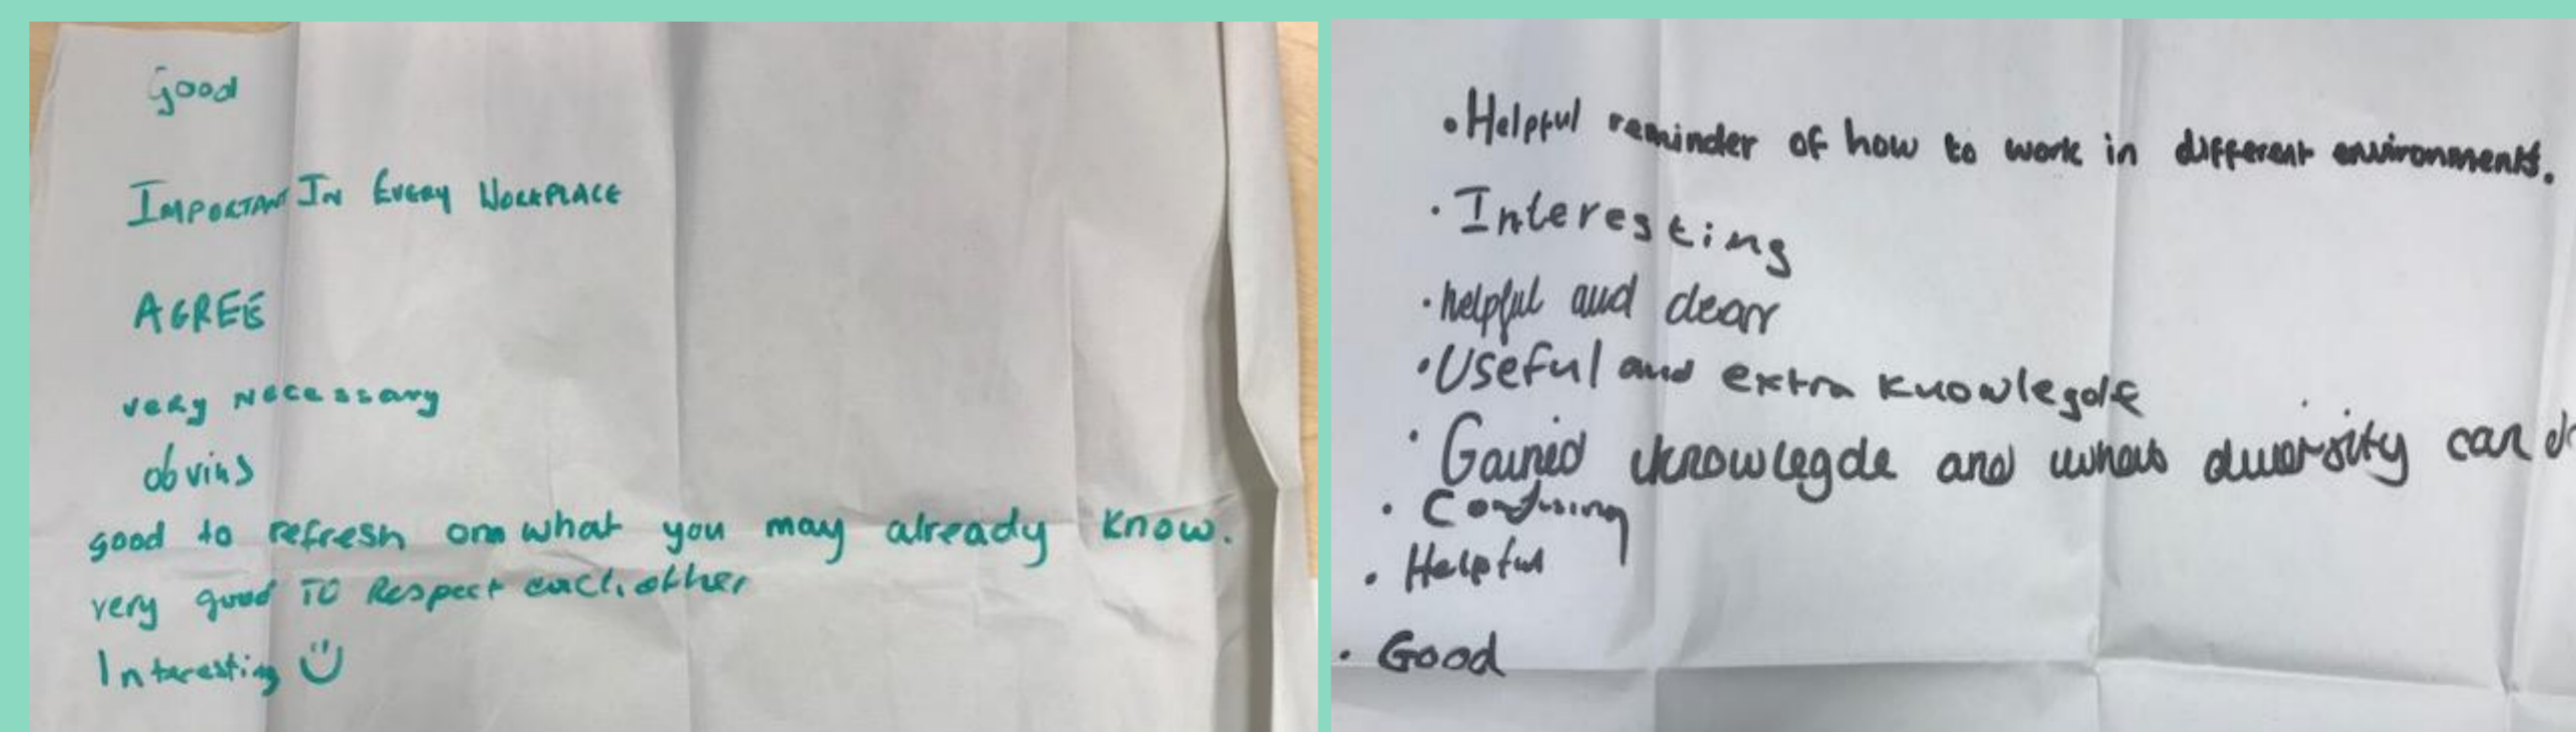 Good
IMPORTANT IN EVERY WORKPLACE
AGREE
very Necessary
obvius
good to refresh on what you may already know.
very good TO Respect each other
Interesting
• Helpful reminder of how to work in different environments.
• Interesting
• helpful and clear
• Useful and extra knowlegde
• Gained knowlegde and whats diversity can
• Confusing
• Helpful
• Good